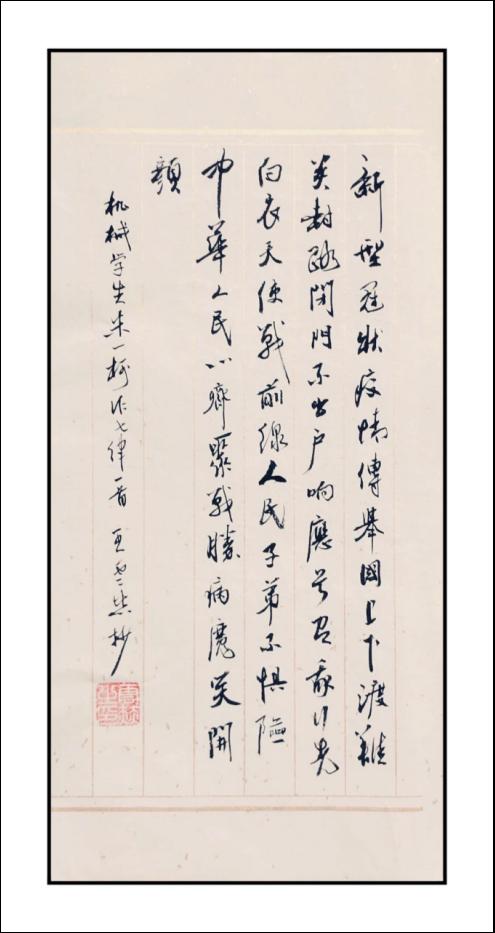 新型冠狀疫情傳舉國上下渡難
关封路閉門不出户响應号召我行先
白衣天使戰前線人民子弟不惧險
中華人民心齊聚戰勝病魔笑開
顏
机械学生朱一柯作七律一首 王抄